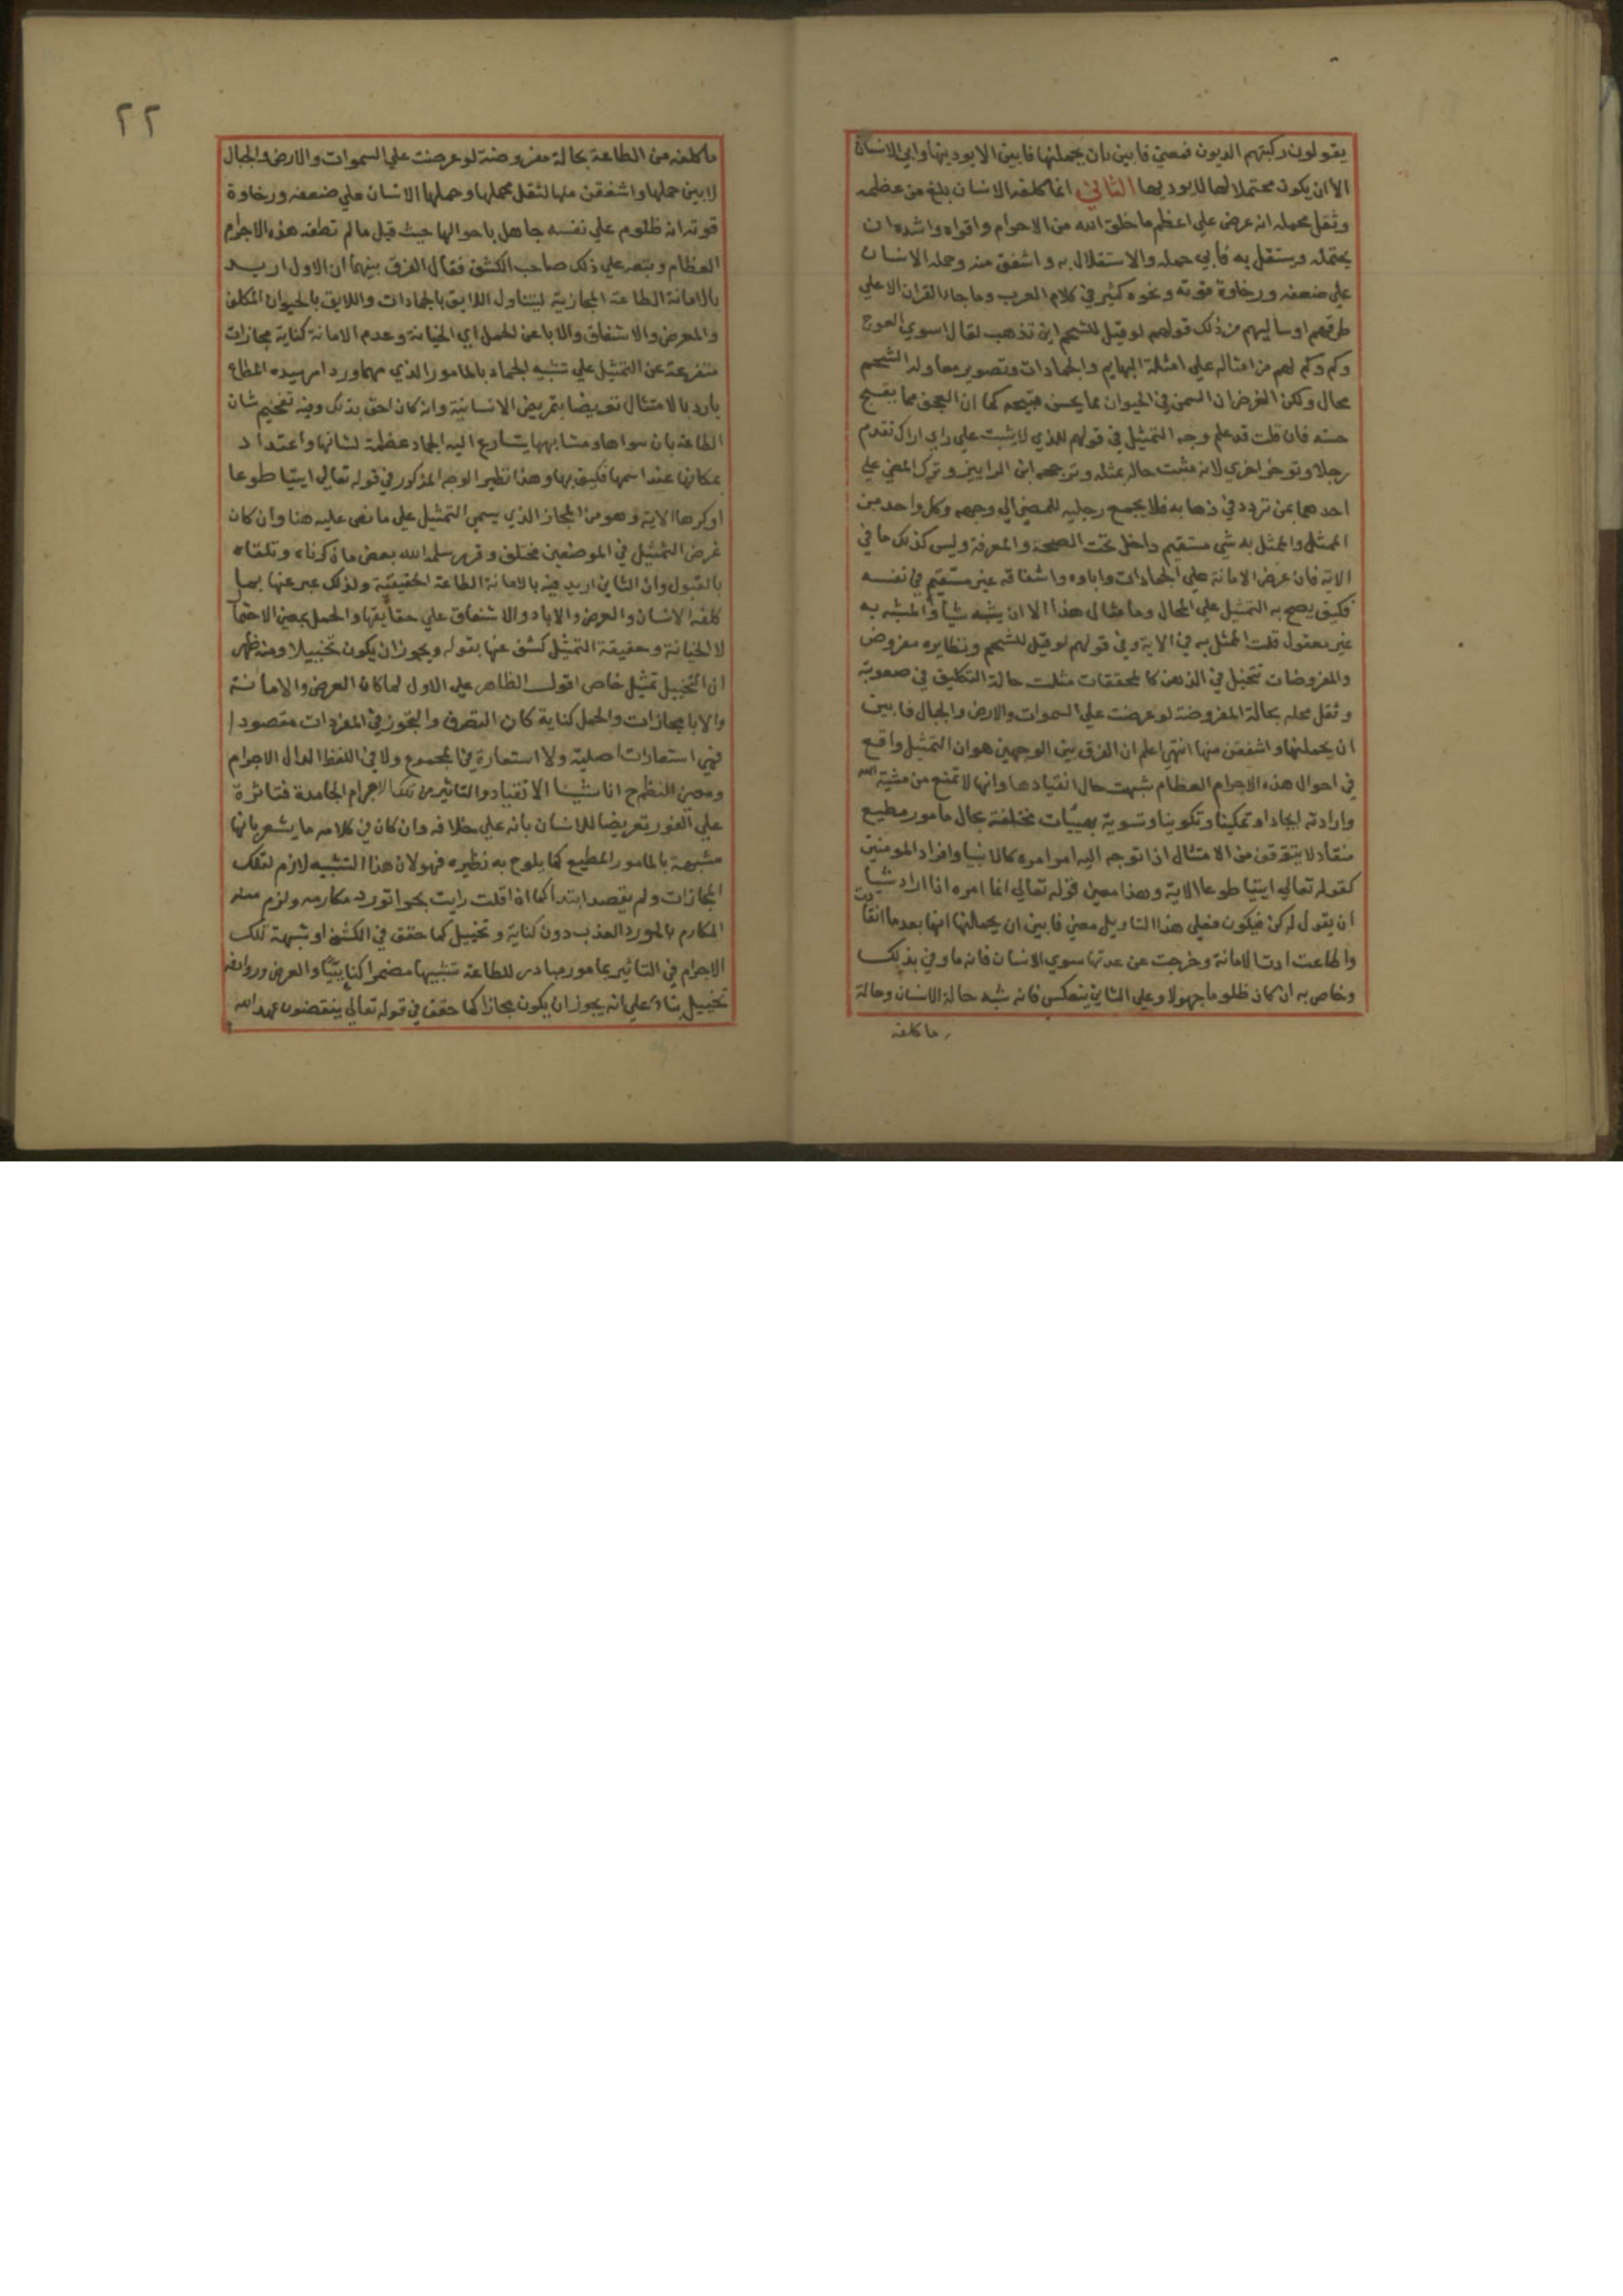 يقولون ركبتهم الديون فمعني فابين بان يحملنها فابين الا يودينها وابي الانسان
الا ان يكون محتملا لها لا يوديها الثاني انما كلفه الانسان بلغ من عظمه
وثقل محمله انه عرض علي اعظم ما خلق الله من الاجرام واقواه واشده ان
يحتمله ويستقل به فابي حمله والاستقلال به واشفق منه وحمله الانسان
علي ضعفه ورخاوة قوته ونحوه كثير في كلام العرب وما جا القران الا علي
طرقهم اوساليبهم من ذلك قولهم لو قيل للشحم اين تذهب لقال اسوي العوج
وكم وكم لهم من امثاله علي امثلة البهايم والجمادات وتصوير معاوله الشحم
محال ولكن الغرض ان السمن في الحيوان مما يحسن قبيحه كما ان العجف مما يقبح
حسنه فان قلت قد علم وجه التمثيل في قولهم للذي لا يثبت علي راي اراك تقدم
رجلا وتوخر اخري لانه مثلت حاله بمثله وترجحه ابن الرايين وترك المضي علي
احدهما بمن تردد في ذهابه فلا يجمع رجليه للمضي الي وجهه وكل واحد من
الممثل والممثل به شي مستقيم داخل تحت الصحة والمعرفة وليس كذلك ما في
الاية فان عرض الامانة علي الجمادات واباوه واشفاقه غير مستقيم في نفسه
فكيف يصح به التمثيل علي المحال وما مثال هذا الا ان يشبه شيا والمشبه به
غير معقول قلت الممثل به في الاية وفي قولهم لو قيل للشحم ونظايره مفروض
والمفروضات تتخيل في الذهن كالمحققات مثلت حالة التكليف في صعوبة
وثقل محله بحالة المفروضة لو عرضت علي السموات والارض والجبال فابين
ان يحملنها واشفقن منها انتهي اعلم ان الفرق بين الوجهين هو ان التمثيل واقع
في احوال هذه الاجرام العظام شبهت حال انقيادها وانها لا تمتنع من مشية الله
وارادته ايجادا وتمكينا وتكوينا وتسوية بهيئات مختلفة بحال مامور مطيع
منقاد لا يتوقف من الامتثال اذا توجه اليه امر امره كالانبيا وافراد المومنين
كقوله تعالي ايتيا طوعا الاية وهذا معني قوله تعالي انما امره اذا اراد شيا
ان يقول له كن فيكون فعلي هذا التاويل معني فابين ان يحملنها انها بعدما انقادت
واطاعت ادت الامانة وخرجت عن عدتها سوي الانسان فانه ما وفي بذلك
وخاص به ان كان ظلوما جهولا وعلي الثاني ينعكس فانه شبه حالة الانسان وحالة
ما كلفه
٢٢
ما كلفه من الطاعة بحالة مفروضة لو عرضت علي السموات والارض والجبال
لابين حملها واشفقن منها لثقل محملها وحملها الانسان علي ضعفه ورخاوة
قوته انه ظلوم علي نفسه جاهل باحوالها حيث قبل ما لم تطقه هذه الاجرام
العظام وتبعه علي ذلك صاحب الكشف فقال الفرق بينهما ان الاول اريد
بالامانة الطاعة المجازية ليتناول اللايق بالجمادات واللايق بالحيوان المكلف
والعرض والاشفاق والابا عن الحمل اي الخيانة وعدم الامانة كناية مجازات
متفرعة عن التمثيل علي تشبيه الجماد بالمامور الذي مهما ورد امر سيده المطاع
بادر بالامتثال تعريضا بتمريض الانسانية وانه كان احق بذلك وفيه تفخيم شان
الطاعة بان سواها ومشابهها يتسارع اليه الجماد عظمة لشانها واعتدا د
بمكانها عند اسمها فكيف بها وهذا نظير الوجه المذكور في قوله تعالي ايتيا طوعا
اوكرها الاية وهو من المجاز الذي يسمي التمثيل علي ما نص عليه هنا وان كان
غرض التمثيل في الموضعين مختلف وقرر سلمه الله بعض ما ذكرناه وتلقاه
بالقبول وان الثاني اريد فيه بالامانة الطاعة الحقيقية ولذلك عبر عنها بما
كلفه الانسان والعرض والابا والاشفاق علي حقايقها والحمل بمعني الاحتما
لا الخيانة وحقيقة التمثيل كشف عنها بقوله ويجوز ان يكون تخييلا ومنه ظهر
ان التخييل تمثيل خاص اقول الظاهر علي الاول لما كان العرض والامانة
والابا مجازات والحمل كناية كان التصرف والتجوز في المفردات مقصودا
فهي استعارات اصلية ولا استعارة في المجموع ولا في اللفظ الدال الاجرام
ومعني النظم ح انا شينا الانقياد والتاثير من تلك الاجرام الجامدة فتاثرة
علي الفور تعريضا للانسان بانه علي خلافه وان كان في كلامه ما يشعر بانها
مشبهة بالمامور المطيع كما يلوح به نظيره فهو لان هذا التشبيه لازم لتلك
المجازات ولم يقصد ابتدا كما اذا قلت رايت بحرا تورد مكارمه ولزم منه
المكارم بالمورد العذب دون كناية وتخييل كما حقق في الكشف او شبهة تلك
الاجرام في التاثير بمامور مبادر للطاعة تشبيها مضمرا كنايتيا والعرض وروادفه
تخييل بناء علي انه يجوز ان يكون مجازا كما حقق في قوله تعالي ينقضون عهد الله